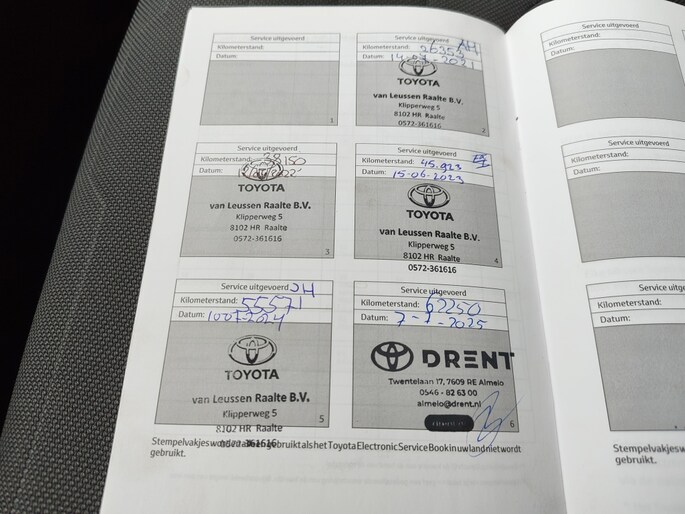 Service uitgevoerd
Kilometerstand:
Datum:
1
Service uitgevoerd
Kilometerstand:
Datum: 14-07-2021
TOYOTA
van Leussen Raalte B.V.
Klipperweg 5
8102 HR Raalte
0572-361616
2
Service uitgevoerd
Kilometerstand: 38150
Datum:
TOYOTA
van Leussen Raalte B.V.
Klipperweg 5
8102 HR Raalte
0572-361616
3
Service uitgevoerd
Kilometerstand: 45.923
Datum: 15-06-2023
TOYOTA
van Leussen Raalte B.V.
Klipperweg 5
8102 HR Raalte
0572-361616
4
Service uitgevoerd JH
Kilometerstand: 55571
Datum: 10072024
TOYOTA
van Leussen Raalte B.V.
Klipperweg 5
8102 HR Raalte
0572-361616
5
Service uitgevoerd
Kilometerstand: 62250
Datum: 7-7-2025
DRENT
Twentelaan 17, 7609 RE Almelo
0546 - 82 63 00
almelo@drent.nl
6
Stempelvakjes gebruikt als het Toyota Electronic Service Book in uw land niet wordt
gebruikt.
Service uitgevoerd
Kilometerstand:
Datum:
Service uitgevoerd
Kilometerstand:
Datum:
Service uitg
Kilometerstand:
Datum:
Stempelvakjes wor
gebruikt.